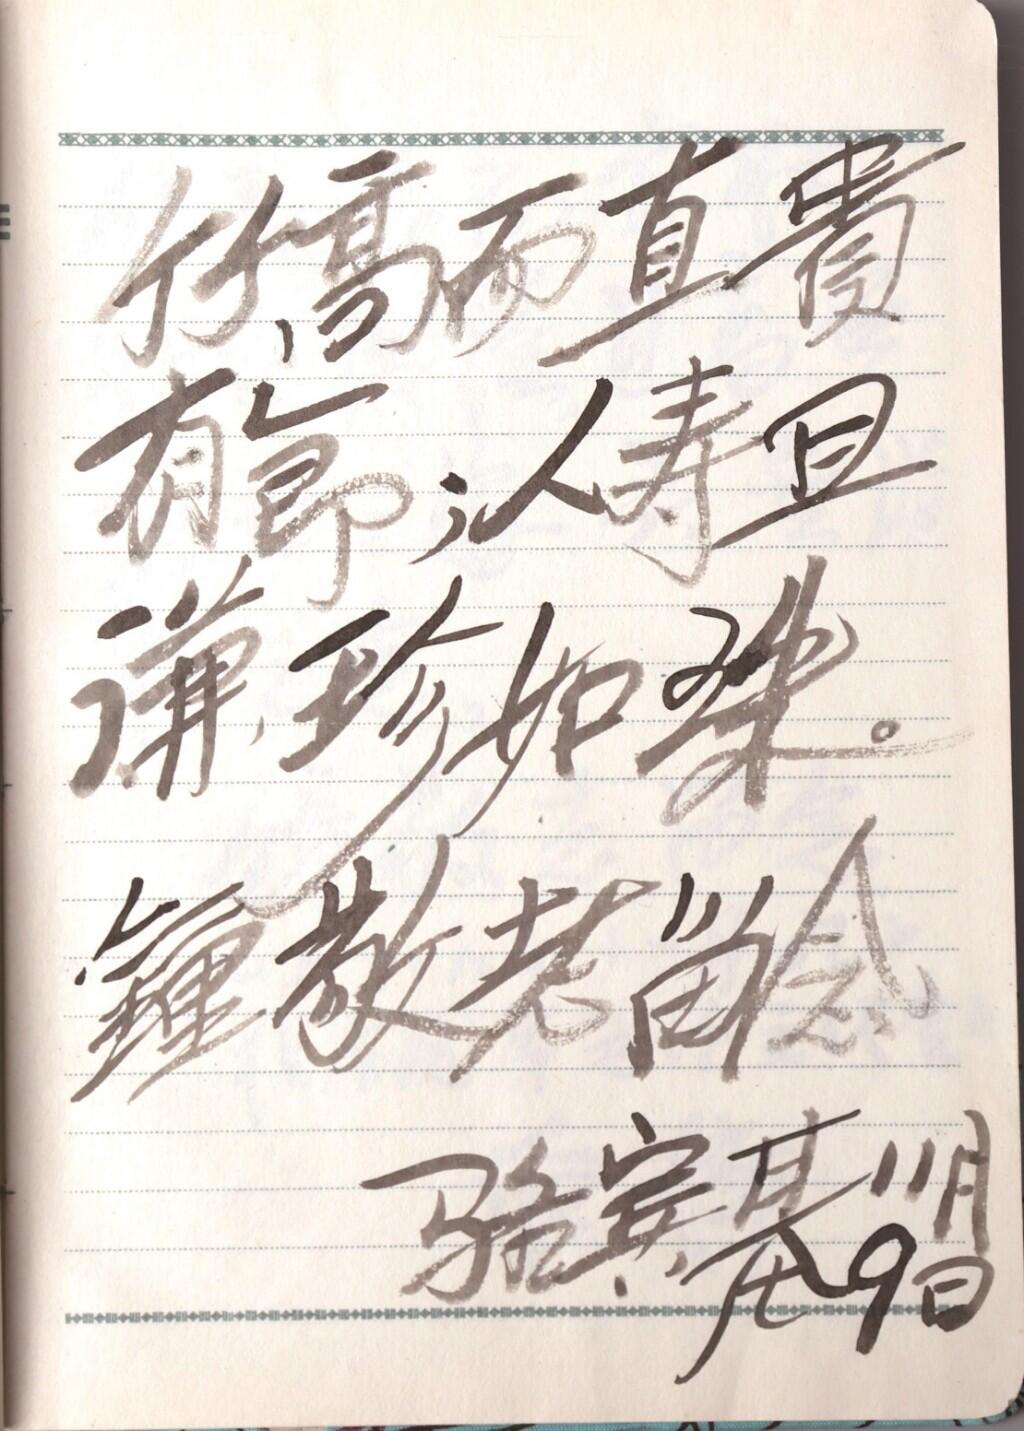 竹高而直貴
有節；人寿且
谦珍如染。
鍾敬老留念
骆宾基11月
9日